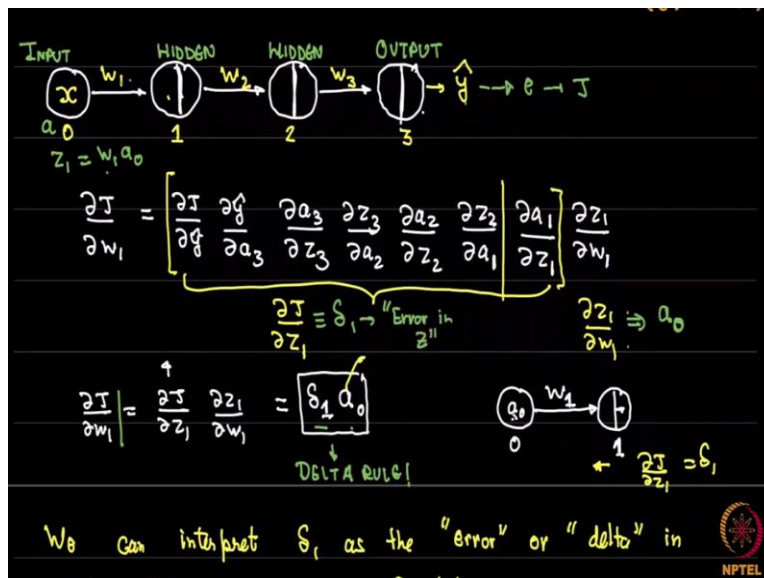 INPUT HIDDEN HIDDEN OUTPUT
x w₁ w₂ w₃ ŷ --→ e → J
a 0 1 2 3
z₁ = w₁a₀
∂J/∂w₁ = [∂J/∂ŷ ∂ŷ/∂a₃ ∂a₃/∂z₃ ∂z₃/∂a₂ ∂a₂/∂z₂ ∂z₂/∂a₁ | ∂a₁/∂z₁] ∂z₁/∂w₁
∂J/∂z₁ ≡ δ₁ → "Error in z" ∂z₁/∂w₁ ⇒ a₀
∂J/∂w₁ | = ∂J/∂z₁ ∂z₁/∂w₁ = δ₁ a₀ a₀ w₁
0 1
↓ DELTA RULE! ← ∂J/∂z₁ = δ₁
We can interpret δ₁ as the "error" or "delta" in
NPTEL